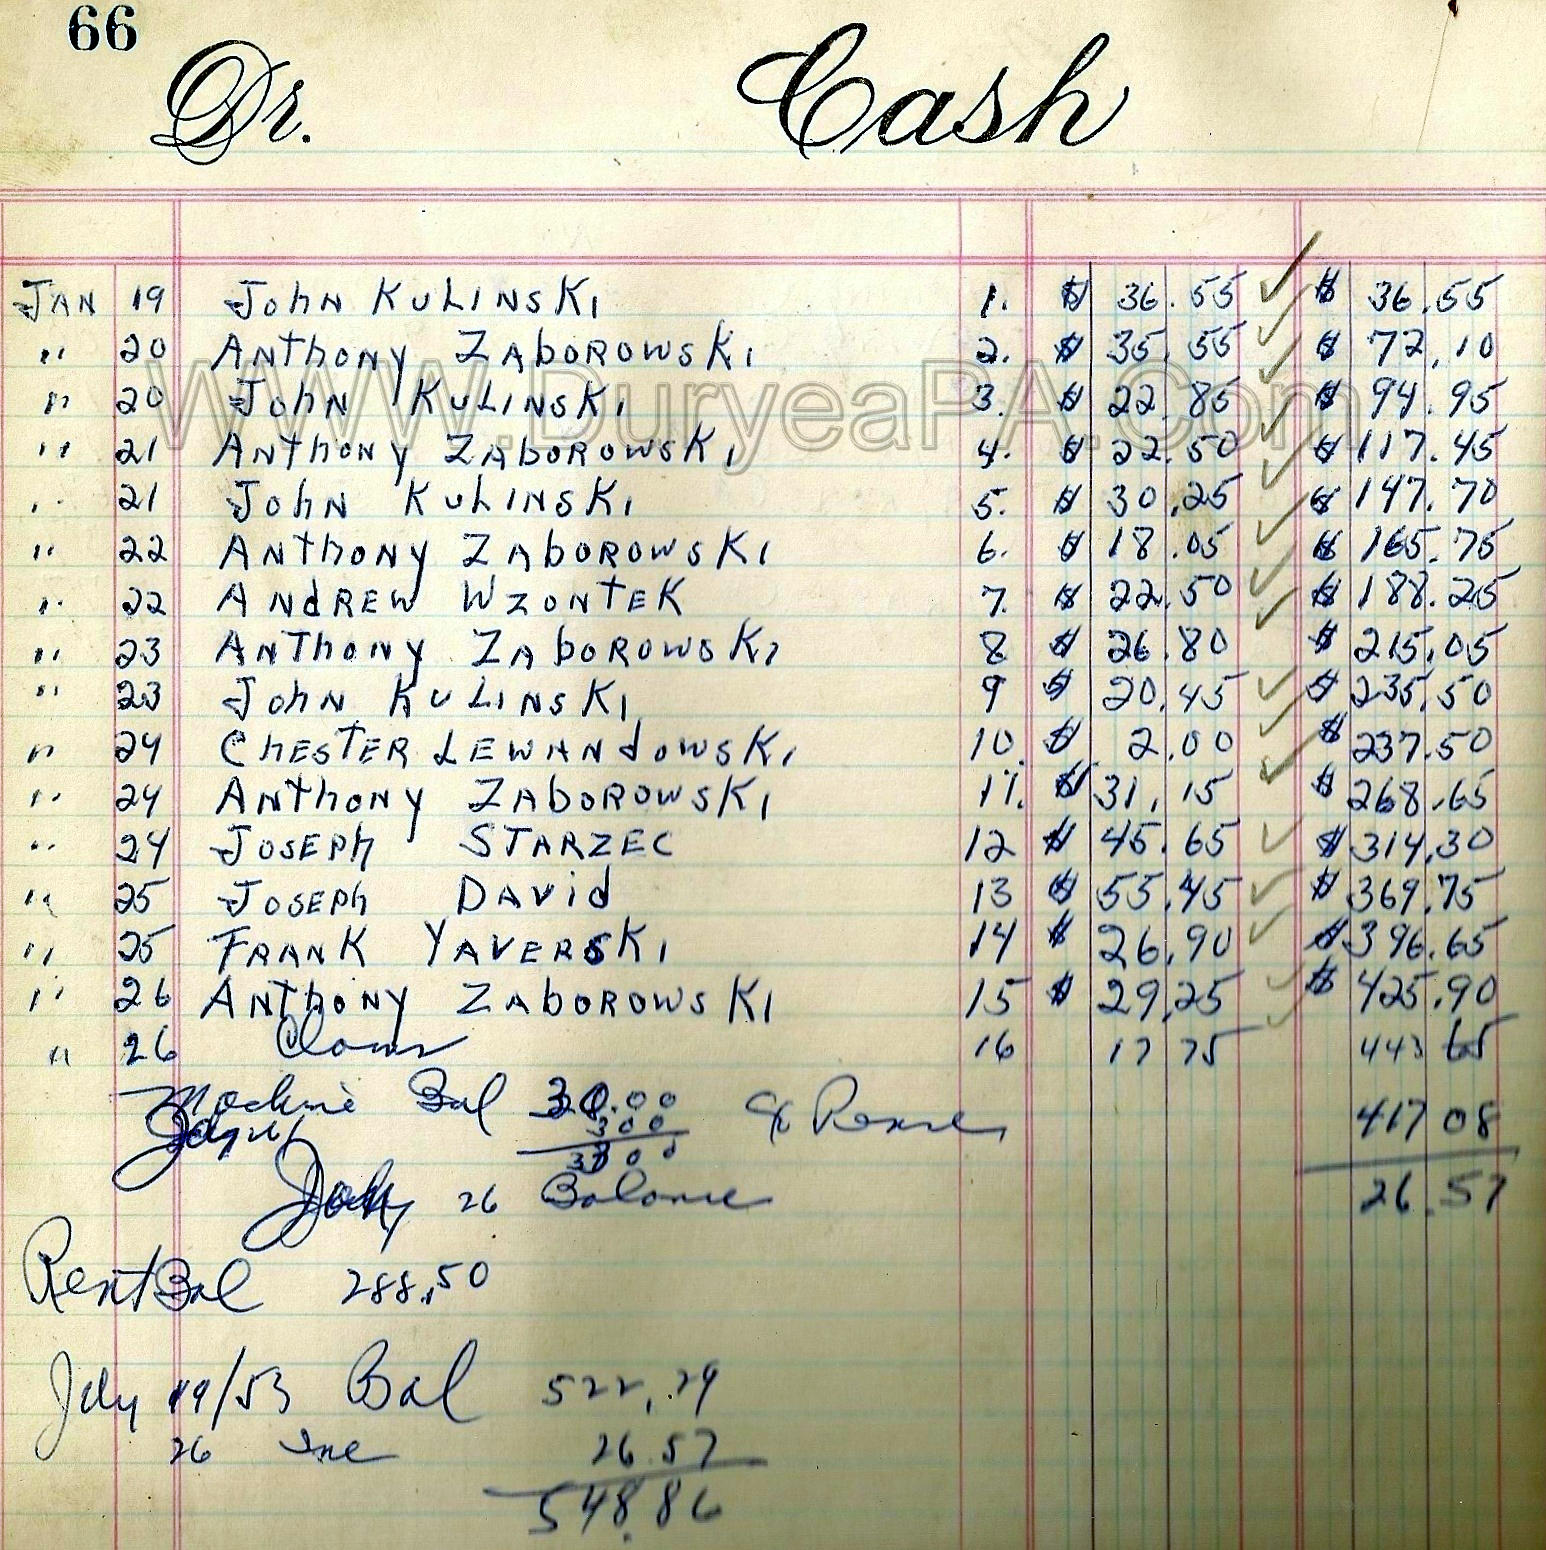 66
Dr. Cash
JAN 19 John KULINSKI 1. $ 36.55 ✓ $ 36.55
" 20 Anthony ZABOROWSKI 2. $ 35.55 ✓ $ 72.10
" 20 John KULINSKI 3. $ 22.85 ✓ $ 94.95
www.DuryeaPA.Com
" 21 Anthony ZABOROWSKI 4. $ 22.50 ✓ $ 117.45
" 21 John KULINSKI 5. $ 30.25 ✓ $ 147.70
" 22 Anthony ZABOROWSKI 6. $ 18.05 ✓ $ 165.75
" 22 ANDREW WZONTEK 7. $ 22.50 ✓ $ 188.25
" 23 Anthony ZABOROWSKI 8 $ 26.80 ✓ $ 215.05
" 23 John KULINSKI 9 $ 20.45 ✓ $ 235.50
" 24 CHESTER LEWANdOWSKI 10. $ 2.00 ✓ $ 237.50
" 24 Anthony ZABOROWSKI 11. $ 31.15 ✓ $ 268.65
" 24 JOSEPH STARZEC 12 $ 45.65 ✓ $ 314.30
" 25 JOSEPH DAVID 13 $ 55.45 ✓ $ 369.75
" 25 FRANK YAVERSKI 14 $ 26.90 ✓ $ 396.65
" 26 Anthony ZABOROWSKI 15 $ 29.25 ✓ $ 425.90
" 26 16 17 75 ✓ 443 65
Machine Bal 30.00 417 08
300
3300
July 26 Balance 26.57
Rent Bal 288.50
July 19/53 Bal 522.29
26 Inc 26.57
548.86